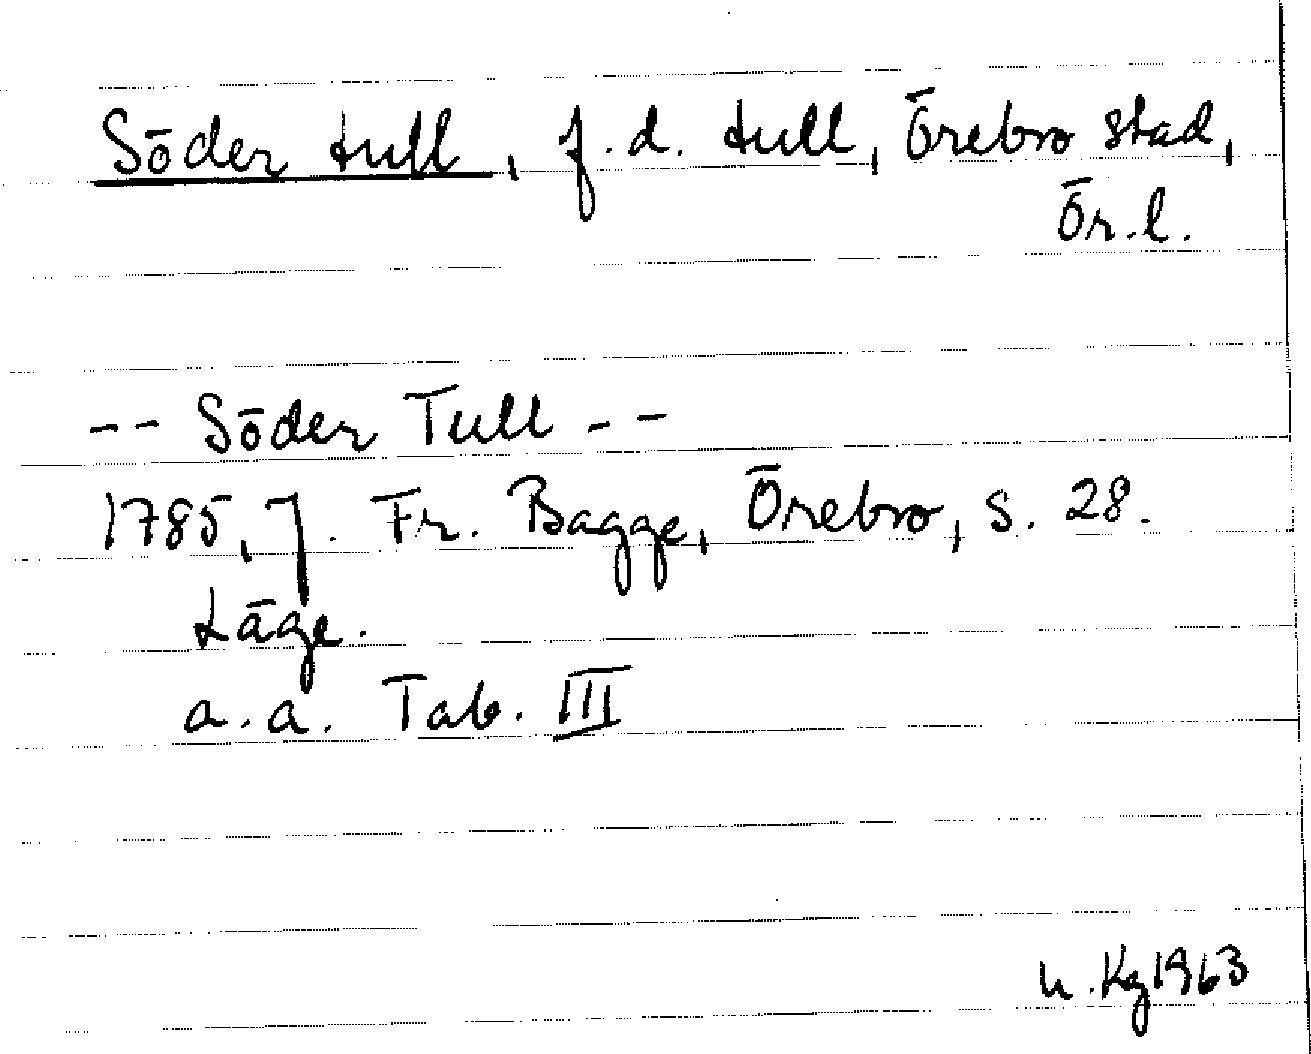 Söder tull, f.d. tull, Örebro stad,
Ör.l.
-- Söder Tull --
1785, J. Fr. Bagge, Örebro, s. 28.
Läge.
a.a. Tab. III
u. Kg 1963